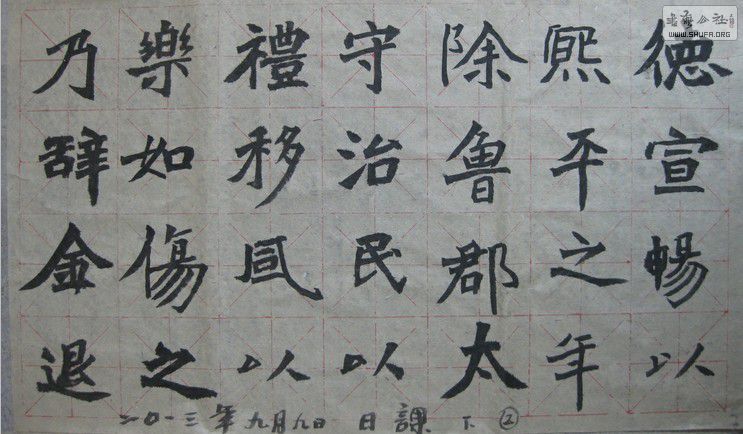 德宣暢以
熙平之年
除魯郡太
守治民以
禮移風以
樂如傷之
乃辭金退
二〇一三年九月九日 日課 下 ②
WWW.SHUFA.ORG